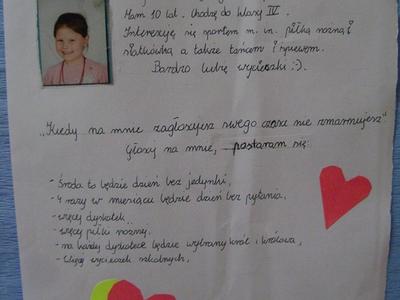 Mam 10 lat. Chodzę do klasy IV.
Interesuję się sportem m. in. piłką nożną i
siatkówką a także tańcem i śpiewem.
Bardzo lubię wycieczki :).
„Kiedy na mnie zagłosujesz swego czasu nie zmarnujesz"
Głosuj na mnie, postaram się:
- Środa to będzie dzień bez jedynki,
- 4 razy w miesiącu będzie dzień bez pytania,
- więcej dyskotek,
- więcej piłki nożnej,
- na każdej dyskotece będzie wybrany król i królowa,
- więcej wycieczek szkolnych,